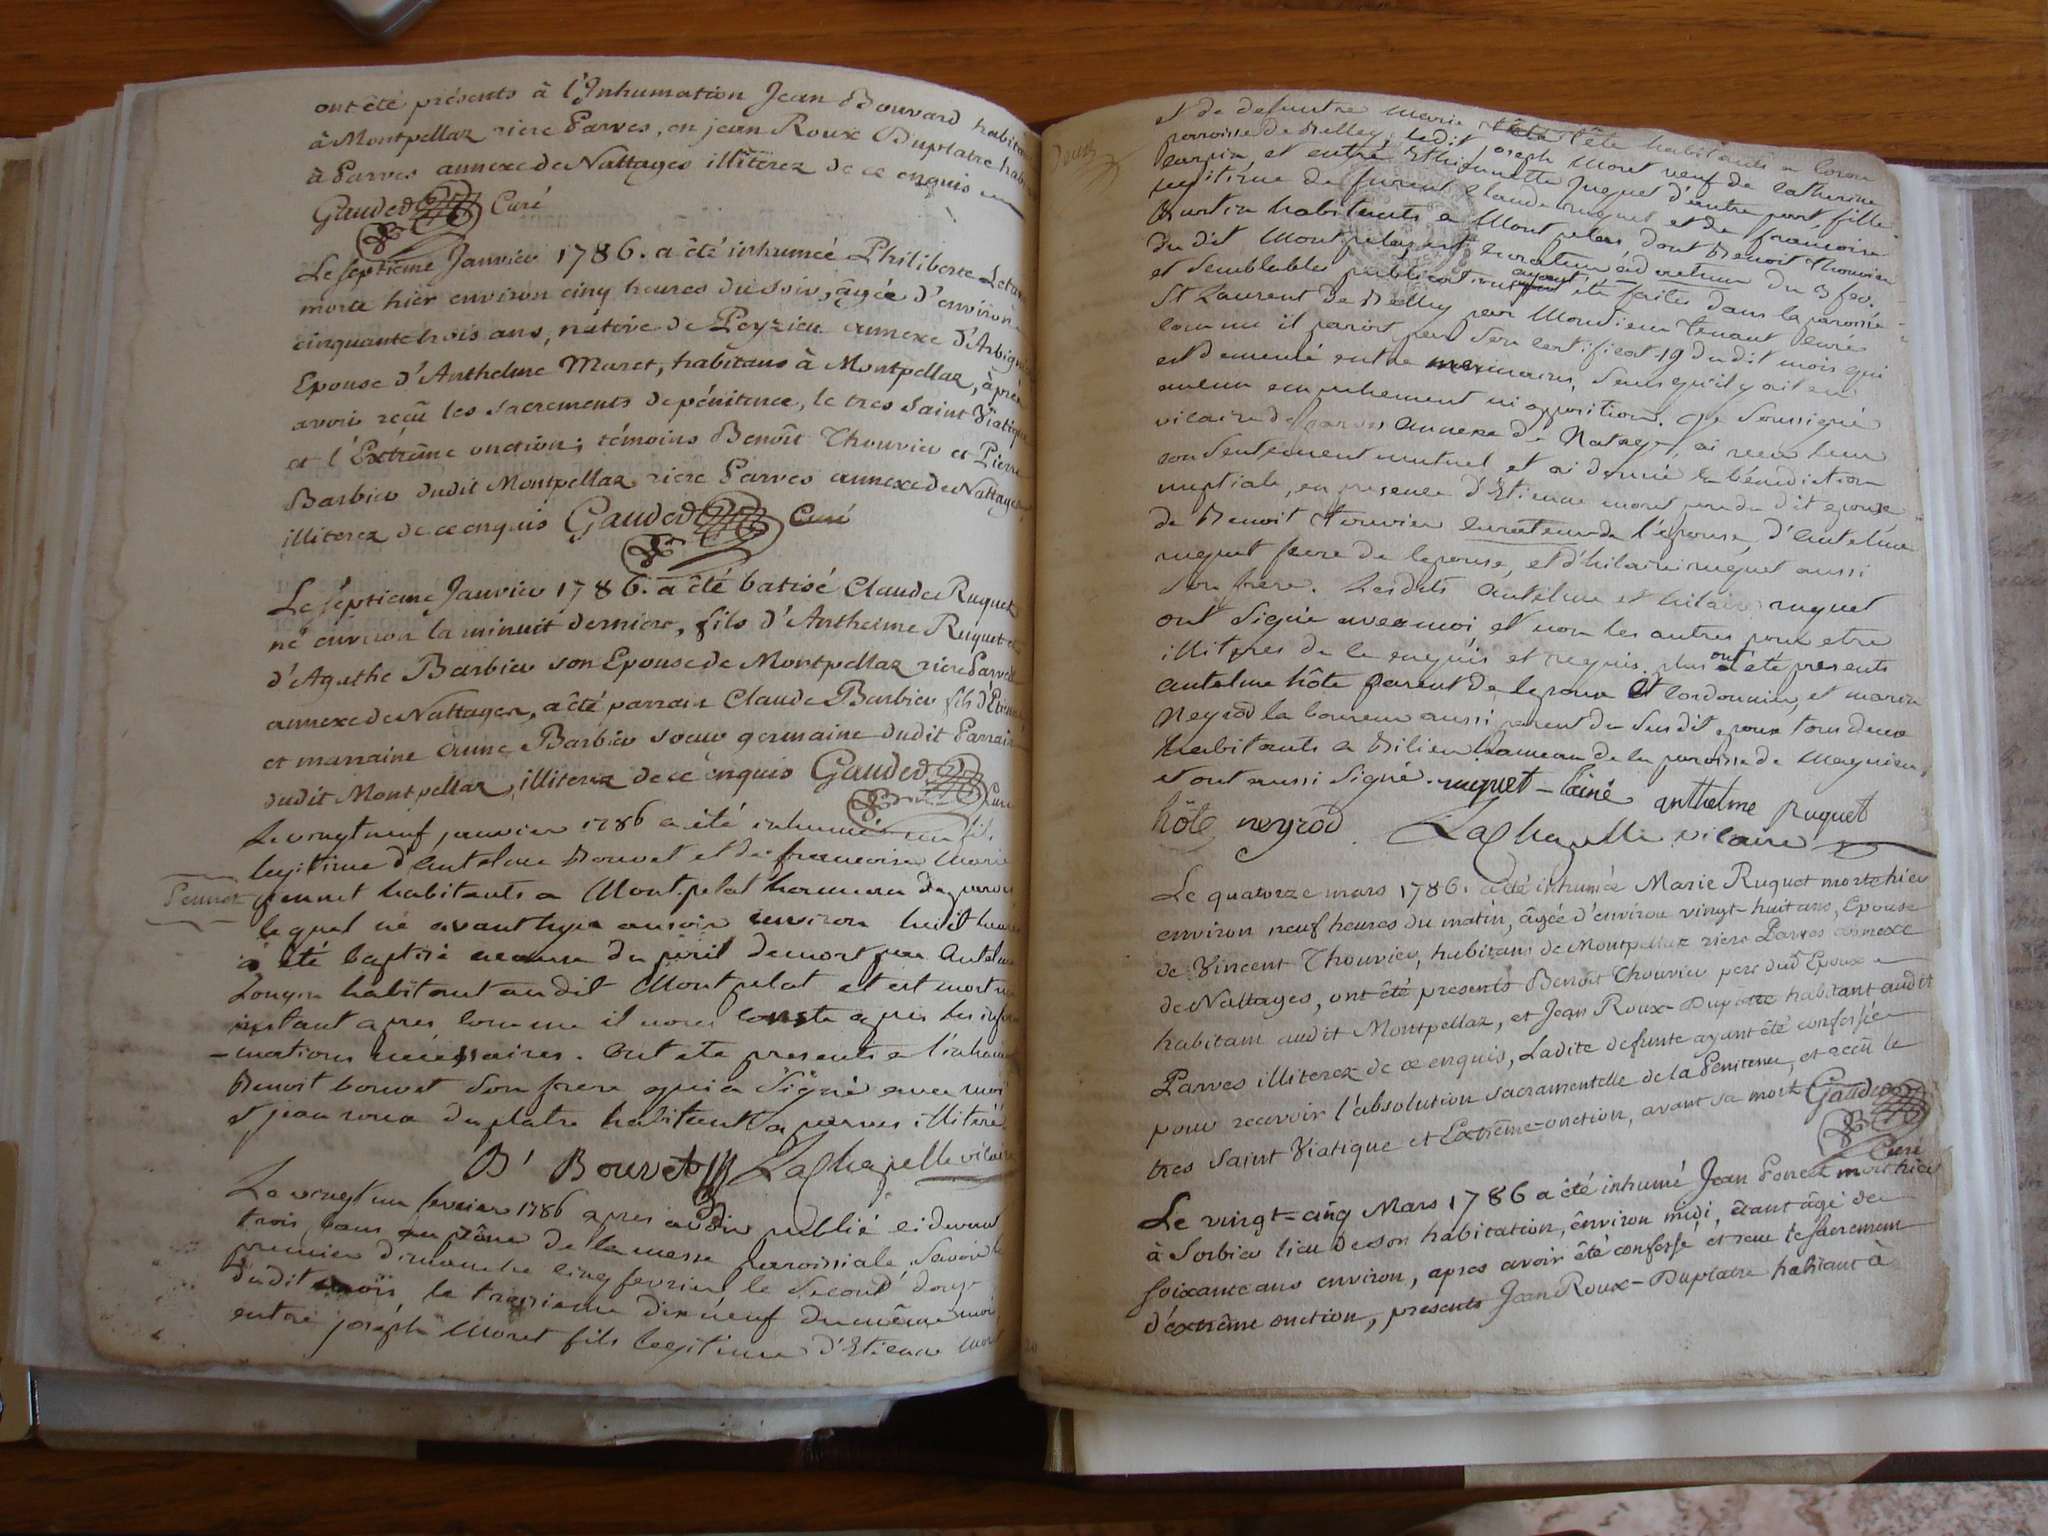 ont été présents à l'Inhumation Jean Bouvard
à Montpellaz riere Parves, en jean Roux Duplatre
à Parves annexe de Nattages illiterez de ce enquis
Gauded Curé
Le septieme Janvier 1786. a été inhumée Philiberte
morte hier environ cinq heures du soir, âgée d'environ
cinquante trois ans, nátive de Peyzieu annexe
Epouse d'Anthelme Maret, habitans à Montpellaz, après
avoir reçû les sacrements de pénitence, le tres saint Viatique
et l'Extrême onction; témoins Benoît Thouvier et Pierre
Barbier dudit Montpellaz riere Parves annexe de Nattages
illiterez de ce enquis Gauded Curé
Le séptieme Janvier 1786. a été batisé Claude Ruquet
né environ la minuit derniere, fils d'Anthelme Ruquet
d'Agathe Barbier son Epouse de Montpellaz riere Parves
annexe de Nattages, a été parrain Claude Barbier fils
et marraine Barbier soeur germaine dudit Parrain
dudit Montpellaz, illiterez de ce enquis Gauded Curé
Le vingt neuf janvier 1786 a été inhumé un fils
legitime d'Antelme Bouvet et de francoise Marie
Peunet
peunet habitants a Montpelat hameau de parves
lequel né avant hyer au soir environ huit heures
a été baptisé a cause du péril de mort par Antelme
habitant audit Montpelat et est mort un
instant apres comme il nous conste apres les infor
-mations nécéssaires. Ont été presents a
Benoit bouvet son frere qui a signé avec moi
et jean roux duplatre habitant a parves illiteré
B' Bouvet Lachapelle vicaire
Le vingt un fevrier 1786 apres avoir publié
trois bans au prône de la messe paroissiale, Savoir le
premier dimanche cinq fevrier, le second douze
dudit mois, le troisieme dix neuf du même mois
entre joseph Moret fils legitime d'Etienne Moret
et de defuntre Marie habitants a
parroisse de Belley, ledit joseph Moret veuf de catherine
et entre Ethiennette ruquet d'autre part, fille
legitime de furent Claude ruquet et de francoise
Burtin habitants a Montpelas, dont Benoit Thouvier
du dit Montpelas est curateur du 3 fev.
et semblables publications ayant été faites dans la paroisse
St Laurent de Belley par Monsieur Tenant Curé
comme il paroit par son certificat 19 du dit mois qui
est demeuré entre mes mains, sans qu'il y ait eu
aucun empechement ni opposition. Je soussigné
vicaire de parves annexe de Natage, ai recu leur
consentement mutuel et ai donné la bénédiction
nuptiale, en presence d'Etienne moret pere du dit epoux
de Benoit Touvier curateur de l'épouse, d'antelme
ruquet frere de lepouse, et d'hilaire ruquet aussi
son frere. Lesdits Antelme et hilaire ruquet
ont signé avec moi, et non les autres pour etre
illitires de ce enquis et requis. plus ont été presents
antelme hôte parent de lepoux et cordonnier, et
Neyrod laboureur aussi parent du susdit epoux tous deux
habitants a Bilieu hameau de la paroisse de Magnieu,
et ont aussi signé. ruquet - lainé anthelme ruquet
hôte neyrod Lachapelle vicaire
Le quatorze mars 1786. a été inhumée Marie Ruquet morte hier
environ neuf heures du matin, âgée d'environ vingt-huit ans, Epouse
de Vincent Thouvier, habitans de Montpellaz riere Parves annexe
de Nattages, ont été presents Benoît Thouvier pere dud' Epoux
habitant audit Montpellaz, et Jean Roux-Duplatre habitant audit
Parves illiterez de ce enquis, Ladite defunte ayant été confessée
pour recevoir l'absolution sacramentelle de la Penitence, et recû le
tres saint Viatique et Extrême-onction, avant sa mort Gauded
Curé
Le vingt-cinq Mars 1786 a été inhumé Jean Poncet mort hier
à Sorbier lieu de son habitation, environ midi, étant âgé de
soixante ans environ, apres avoir été confessé et recu le sacrement
d'éxtrême onction, presents Jean Roux-Duplatre habitant à